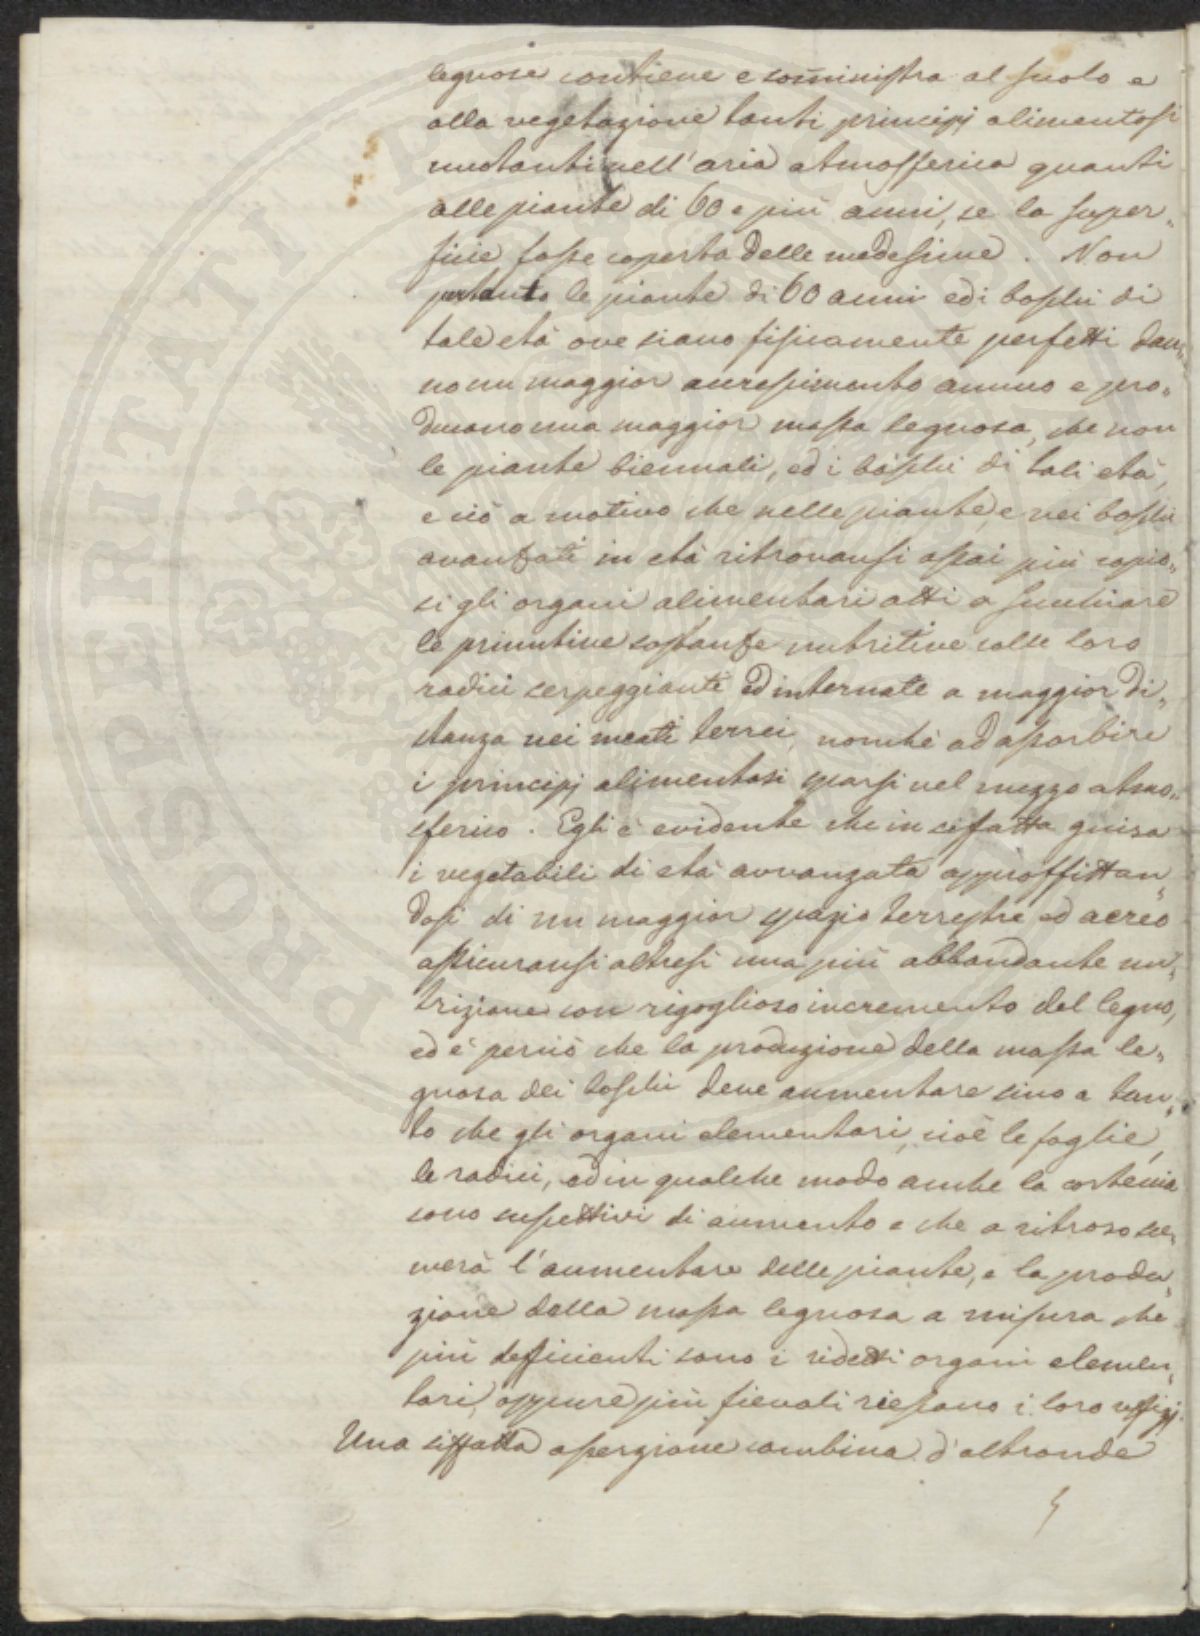 legnose contiene e som̃inistra al suolo e
alla vegetazione tanti principj alimentosi
nuotanti nell'aria atmosferica quanti
alle piante di 60 e più anni, se la super„
ficie fosse coperta delle medesime. Non
pertanto le piante di 60 anni ed i boschi di
tale età ove siano fisicamente perfetti dan„
no un maggior accrescimento annuo e pro„
ducano una maggior massa legnosa, che non
le piante biennali, ed i boschi di tali età,
e ciò a motivo che nelle piante, e nei boschi
avanzati in età ritrovansi assai più copio„
si gli organi alimentari atti a succhiare
le primitive sostanze nutritive colle loro
radici serpeggianti ed internate a maggior di„
stanza nei meati terrei, nonchè ad assorbire
i principj alimentosi sparsi nel mezzo atmo„
sferico. Egli è evidente che in cifatta guisa
i vegetabili di età avvanzata approffittan„
dosi di un maggior spazio terrestre ed aereo
assicuransi altresi una più abbandante nu„
trizione con rigoglioso incremento del legno,
ed è perciò che la produzione della massa le„
gnosa dei boschi deve aumentare sino a tan„
to che gli organi elementari, cioè le foglie,
le radici, ed in qualche modo anche la corteccia
sono suscettivi di aumento e che a ritroso sce„
merà l'aumentare delle piante, e la produ„
zione della massa legnosa a misura che
più defficienti sono i ridetti organi elemen„
tari, oppure più fievoli riescano i loro uffizj.
Una siffatta aserzione combina d'altronde